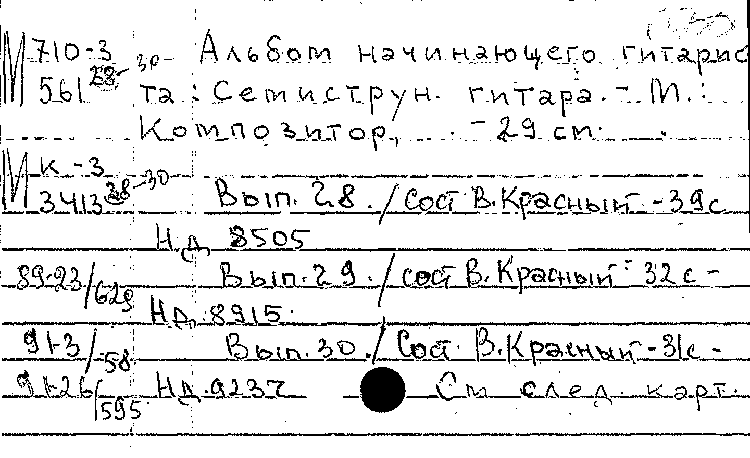 М 710-3 28-30 Альбом начинающего гитарис
561 та : Семиструн. гитара. - М. :
Композитор, - 29 см.
М К-3
3413 28-30 Вып. 28. / Сост В. Красный - 39 с
Н.д. 8505
89-23/629 Вып. 29. / сост В. Красный - 32 с -
Н.д. 8915.
91-3/-58 Вып. 30. / Сост. В. Красный - 31с -
91-26/595 Н.д. 9237 См след. карт.